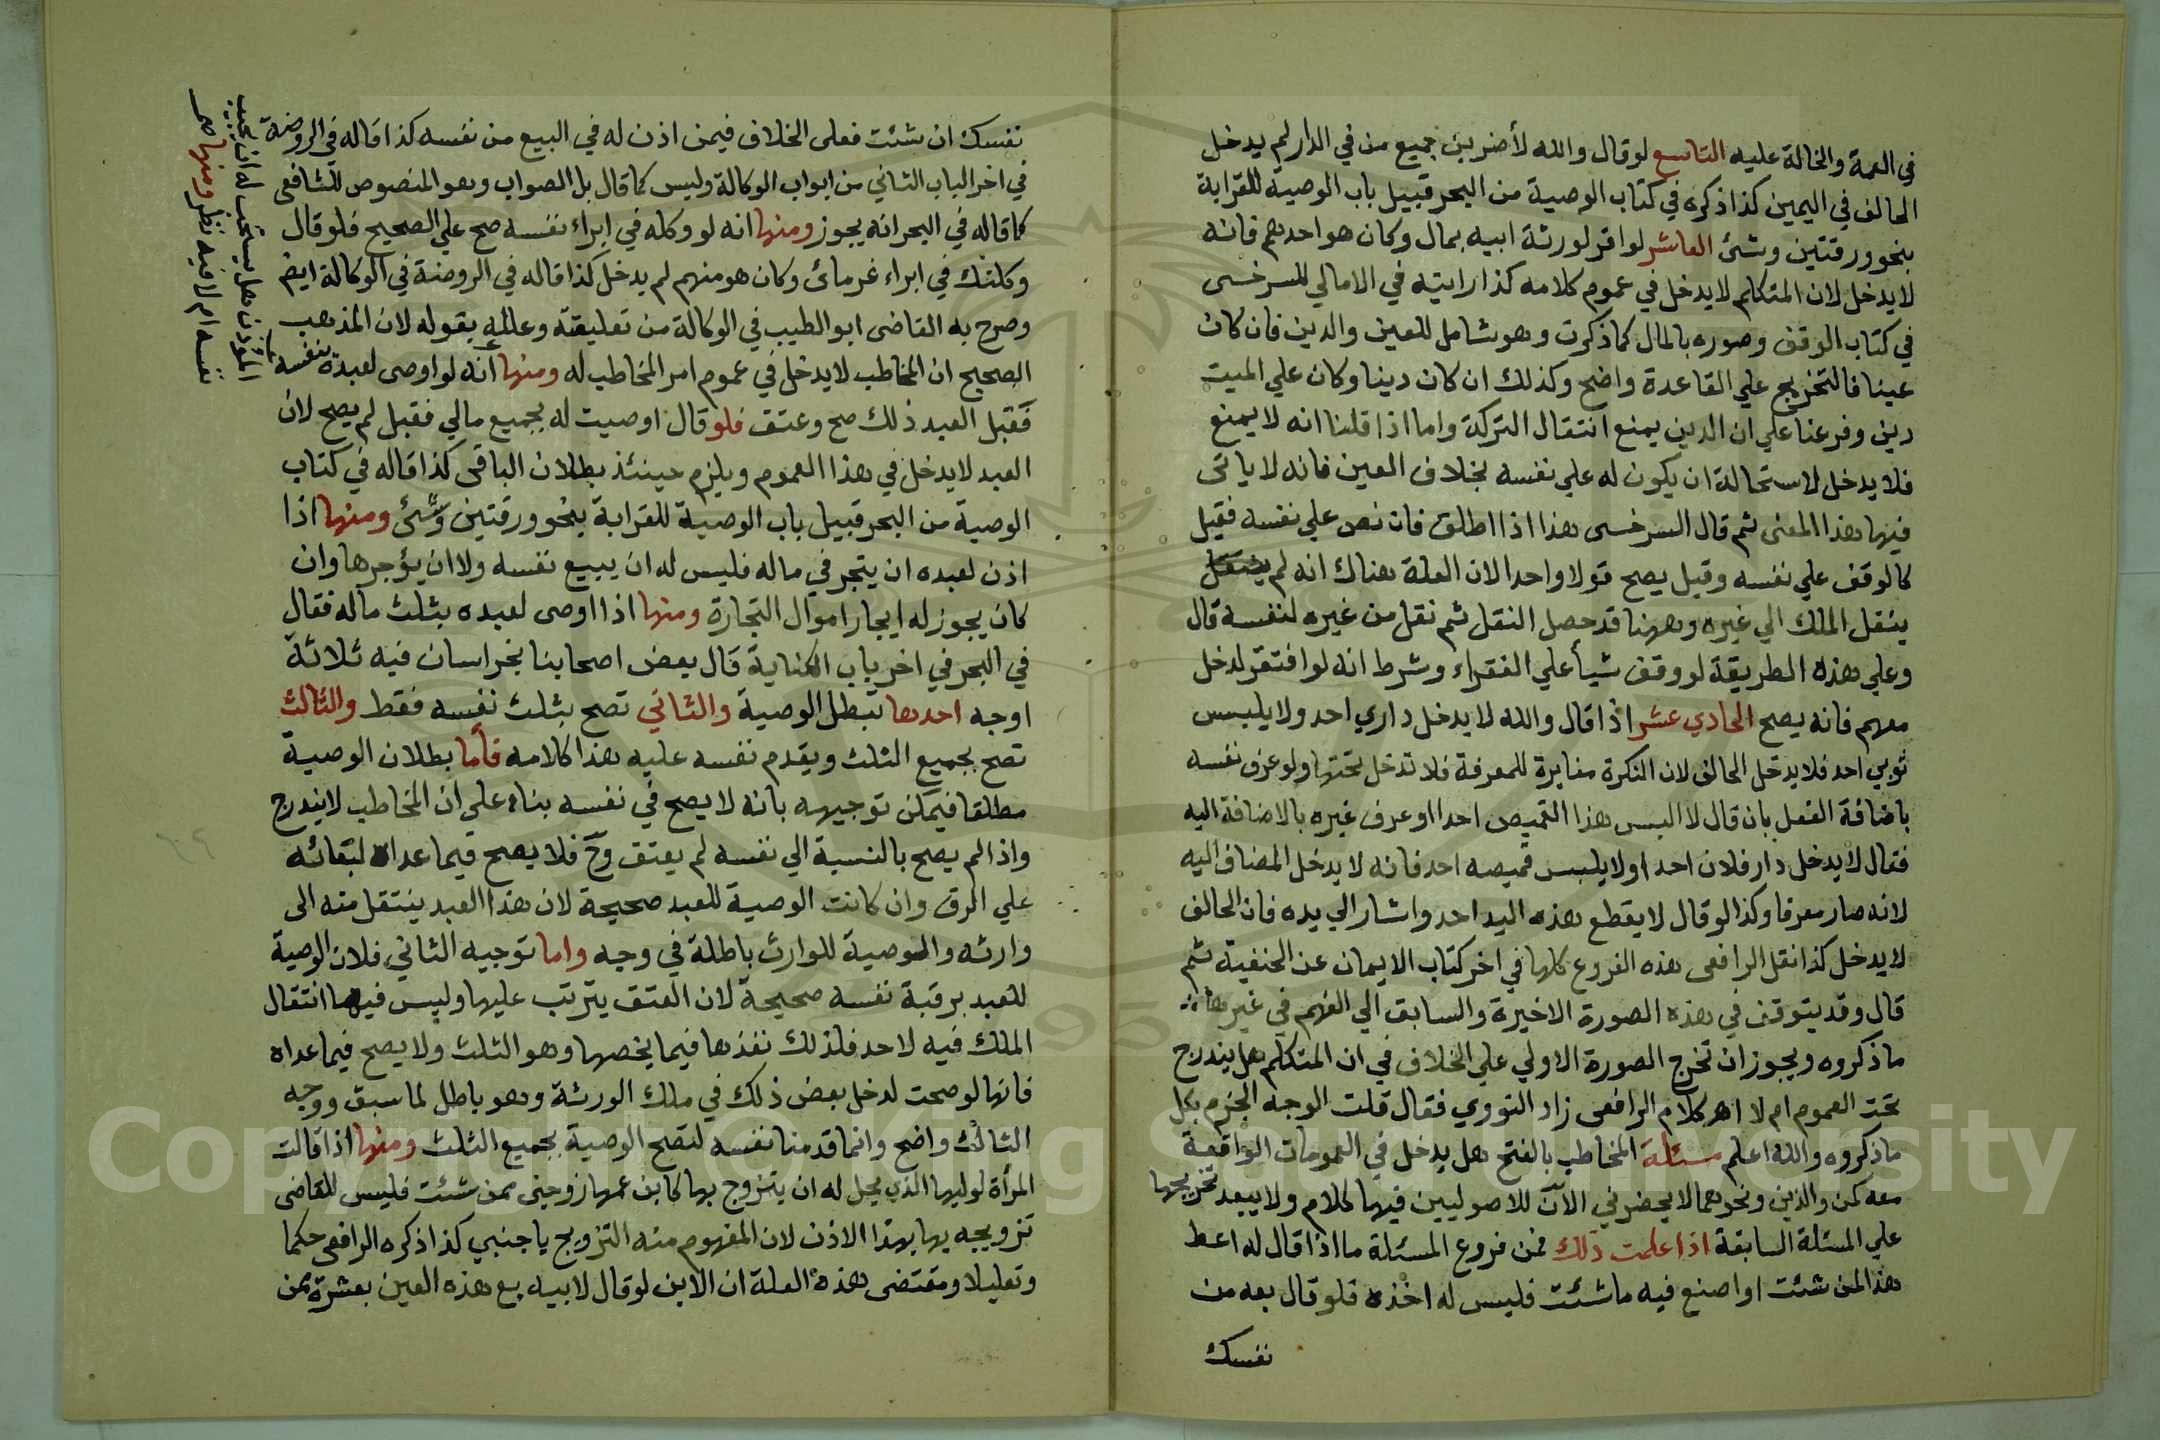 في العمة والخالة عليه التاسع لو قال والله لأضربن جميع من في الدار لم يدخل
الحالف في اليمين كذا ذكره في كتاب الوصية من البحر قبيل باب الوصية للقرابة
بنحو ورقتين وشئ العاشر لو اقر لورثة ابيه بمال وكان هو احدهم فانه
لا يدخل لان المتكلم لا يدخل في عموم كلامه كذا رايته في الامالي للسرخسى
في كتاب الوقف وصوره بالمال كما ذكرت وهو شامل للعين والدين فان كان
عينا فالتخريج علي القاعدة واضح وكذلك ان كان دينا وكان علي الميت
دين وفرعنا علي ان الدين يمنع انتقال التركة واما اذا قلنا انه لا يمنع
فلا يدخل لاستحالة ان يكون له علي نفسه بخلاف العين فانه لا ياتى
فيها هذا المعنى ثم قال السرخسى هذا اذا اطلق فان نص علي نفسه فقيل
كالوقف علي نفسه وقيل يصح قولا واحدا لان العلة هناك انه لم
ينقل الملك الي غيره وههنا قد حصل النقل ثم نقل من غيره لنفسه قال
وعلي هذه الطريقة لو وقف شيأ علي الفقراء وشرط انه لو افتقر لدخل
معهم فانه يصح الحادي عشر اذا قال والله لا يدخل داري احد ولا يلبس
ثوبي احد فلا يدخل الحالف لان النكرة مغايرة للمعرفة فلا تدخل تحتها ولو عرف نفسه
باضافة الفعل بان قال لا البس هذا القميص احدا او عرف غيره بالاضافة اليه
فقال لا يدخل دار فلان احد او لا يلبس قميصه احد فانه لا يدخل المضاف اليه
لانه صار معرفا وكذا لو قال لا يقطع هذه اليد احد واشار الي يده فان الحالف
لا يدخل كذا نقل الرافعى هذه الفروع كلها في اخر كتاب الايمان عن الحنفية ثم
قال وقد يتوقف في هذه الصورة الاخيرة والسابق الي الفهم في غيرها
ما ذكروه ويجوز ان تخرج الصورة الاولي علي الخلاف في ان المتكلم هل يندرج
تحت العموم ام لا اهـ كلام الرافعى زاد النووي فقال قلت الوجه الجزم بكل
ما ذكروه والله اعلم مسئلة المخاطب بالفتح هل يدخل في العمومات الواقعة
معه كمن والذين ونحوهما لا يحضرني الآن للاصوليين فيها كلام ولا يبعد تخريجها
علي المسئلة السابقة اذا علمت ذلك فمن فروع المسئلة ما اذا قال له اعط
هذا لمن شئت او اصنع فيه ما شئت فليس له اخذه فلو قال بعه من
نفسك
نفسك ان شئت فعلى الخلاف فيمن اذن له في البيع من نفسه كذا قاله في الروضة
في اخر الباب الثاني من ابواب الوكالة وليس كما قال بل الصواب وهو المنصوص للشافعى
كما قاله في البحر انه يجوز ومنها انه لو وكله في ابراء نفسه صح علي الصحيح فلو قال
وكلتك في ابراء غرمائى وكان هو منهم لم يدخل كذا قاله في الروضة في الوكالة ايضا
وصرح به القاضى ابو الطيب في الوكالة من تعليقته وعلله بقوله لان المذهب
الصحيح ان المخاطب لا يدخل في عموم امر المخاطب له ومنها أنه لو اوصى لعبده بنفسه
فقبل العبد ذلك صح وعتق فلو قال اوصيت له بجميع مالي فقبل لم يصح لان
العبد لا يدخل في هذا العموم ويلزم حينئذ بطلان الباقى كذا قاله في كتاب
الوصية من البحر قبيل باب الوصية للقرابة بنحو ورقتين وشئ ومنها اذا
اذن لعبده ان يتجر في ماله فليس له ان يبيع نفسه ولا ان يؤجرها وان
كان يجوز له ايجار اموال التجارة ومنها اذا اوصى لعبده بثلث ماله فقال
في البحر في اخر باب الكناية قال بعض اصحابنا بخراسان فيه ثلاثة
اوجه احدها تبطل الوصية والثاني تصح بثلث نفسه فقط والثالث
تصح بجميع الثلث ويقدم نفسه عليه هذا كلامه فأما بطلان الوصية
مطلقا فيمكن توجيهه بانه لا يصح في نفسه بناء علي ان المخاطب لا يندرج
واذا لم يصح بالنسبة الي نفسه لم يعتق وح فلا يصح فيما عداه لبقائه
علي الرق وان كانت الوصية للعبد صحيحة لان هذا العبد ينتقل منه الى
وارثه والوصية للوارث باطلة في وجه واما توجيه الثاني فلان الوصية
للعبد برقبة نفسه صحيحة لان العتق يترتب عليها وليس فيها انتقال
الملك فيه لاحد فلذلك نفذها فيما يخصها وهو الثلث ولا يصح فيما عداه
فانها لو صحت لدخل بعض ذلك في ملك الورثة وهو باطل لما سبق ووجه
الثالث واضح وانما قدمنا نفسه لتصح الوصية بجميع الثلث ومنها اذا قالت
المرأة لوليها الذي يحل له ان يتزوج بها كابن عمها زوجني ممن شئت فليس للقاضى
تزويجه بها بهذا الاذن لان المفهوم منه التزويج باجنبي كذا ذكره الرافعى حكما
وتعليلا ومقتضى هذه العلة ان الابن لو قال لابيه بع هذه العين بعشرة ممن
المؤذن هل يستحب له ان يجيب
نفسه ام لا فيه نظر ومنها صح
Copyright © King Saud University